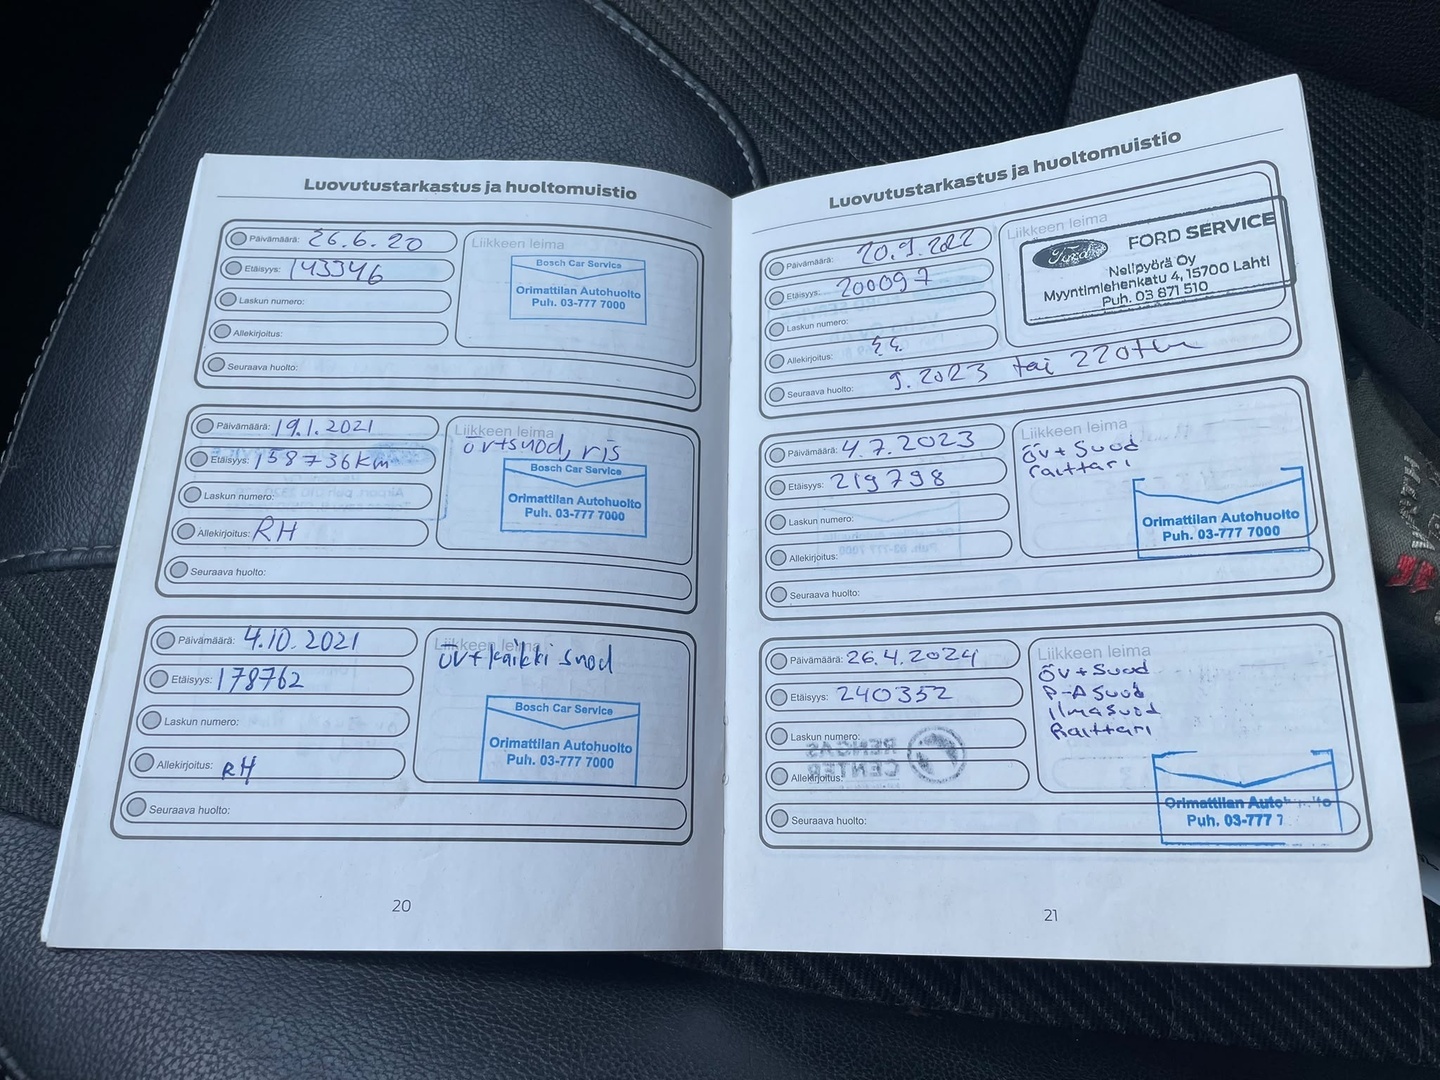 Luovutustarkastus ja huoltomuistio
Päivämäärä: 26.6.20
Etäisyys: 143346
Laskun numero:
Allekirjoitus:
Seuraava huolto:
Liikkeen leima
Bosch Car Service
Orimattilan Autohuolto
Puh. 03-777 7000
Päivämäärä: 19.1.2021
Etäisyys: 158736km
Laskun numero:
Allekirjoitus: RH
Seuraava huolto:
Liikkeen leima
öv+suod, ris
Bosch Car Service
Orimattilan Autohuolto
Puh. 03-777 7000
Päivämäärä: 4.10.2021
Etäisyys: 178762
Laskun numero:
Allekirjoitus: RH
Seuraava huolto:
Liikkeen leima
öv+kaikki suod
Bosch Car Service
Orimattilan Autohuolto
Puh. 03-777 7000
20
Luovutustarkastus ja huoltomuistio
Päivämäärä: 20.9.2022
Etäisyys: 200097
Laskun numero:
Allekirjoitus:
Seuraava huolto: 9.2023 tai 220tkm
Liikkeen leima
Ford FORD SERVICE
Nelipyörä Oy
Myyntimiehenkatu 4, 15700 Lahti
Puh. 03 871 510
Päivämäärä: 4.7.2023
Etäisyys: 219798
Laskun numero:
Allekirjoitus:
Seuraava huolto:
Liikkeen leima
öv+suod
Raittari
Orimattilan Autohuolto
Puh. 03-777 7000
Päivämäärä: 26.4.2024
Etäisyys: 240352
Laskun numero:
Allekirjoitus:
RENGAS
CENTER
Seuraava huolto:
Liikkeen leima
öv+suod
P-A suod
Ilmasuod
Raittari
Orimattilan
Puh. 03-777 7
21